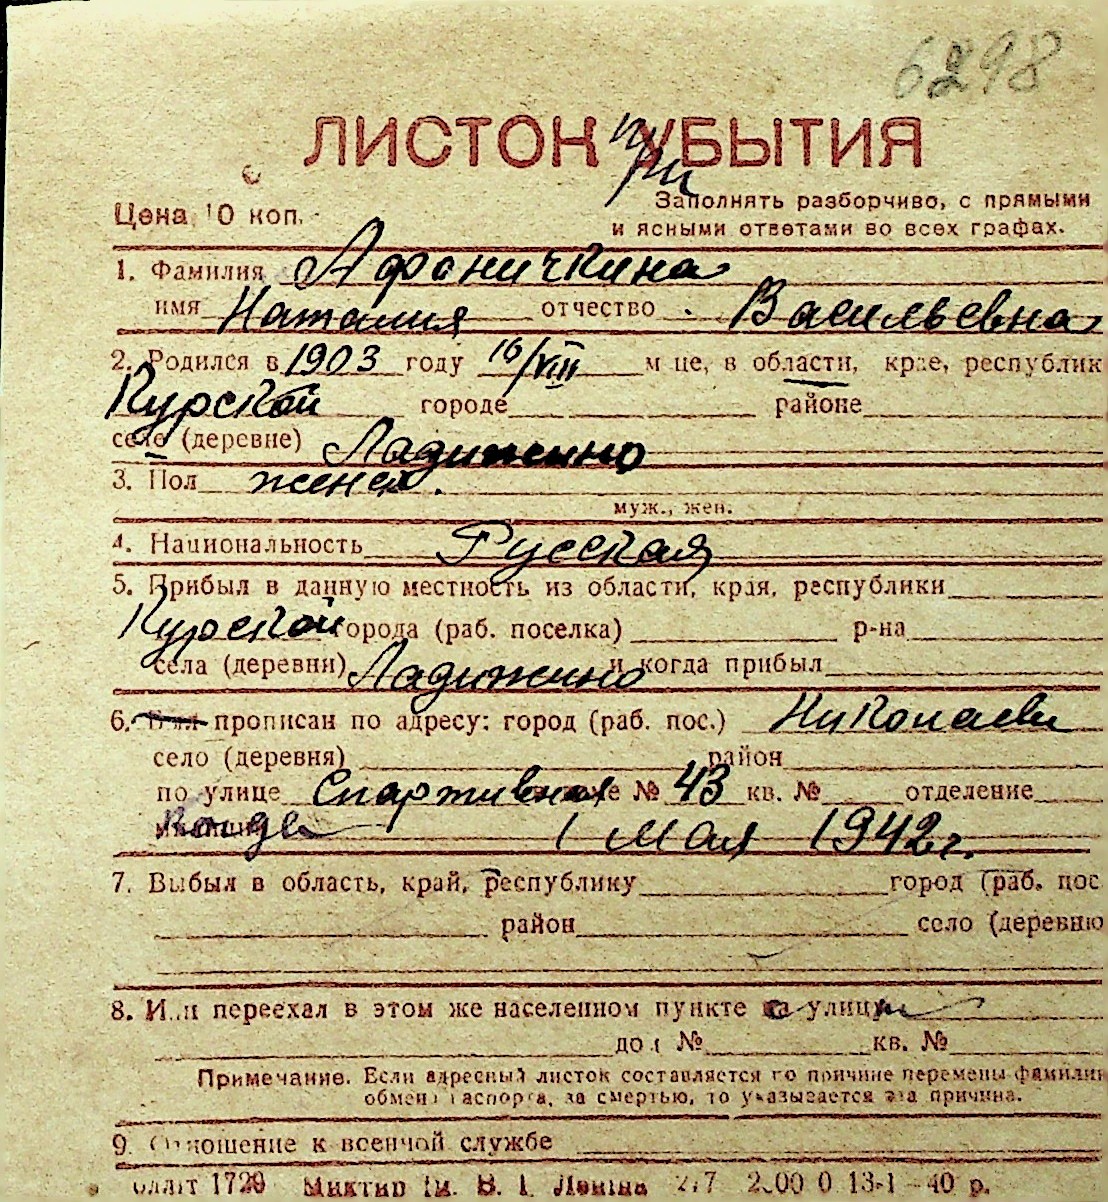 6298
ЛИСТОК УБЫТИЯ
при
Цена 10 коп.
Заполнять разборчиво, с прямыми
и ясными ответами во всех графах.
1. Фамилия Афоничкина
имя Наталия отчество Васильевна
2. Родился в 1903 году 16/VIII м-це, в области, крае, республик
Курской городе районе
селе (деревне) Ладижино
3. Пол женск.
муж., жен.
4. Национальность Русская
5. Прибыл в данную местность из области, края, республики
Курской города (раб. поселка) р-на
села (деревни) Ладижино и когда прибыл
6. Был прописан по адресу: город (раб. пос.) Николаеви
село (деревня) район
по улице Спартивная доме № 43 кв. № отделение
милиции Когда 1 Мая 1942 г.
7. Выбыл в область, край, республику город (раб. пос
район село (деревню
8. Или переехал в этом же населенном пункте на улицу
дом № кв. №
Примечание. Если адресный листок составляется по причине перемены фамилии
обмена паспорта, за смертью, то указывается эта причина.
9. Отношение к военной службе
1729 Им. В. І. Леніна 40 р.